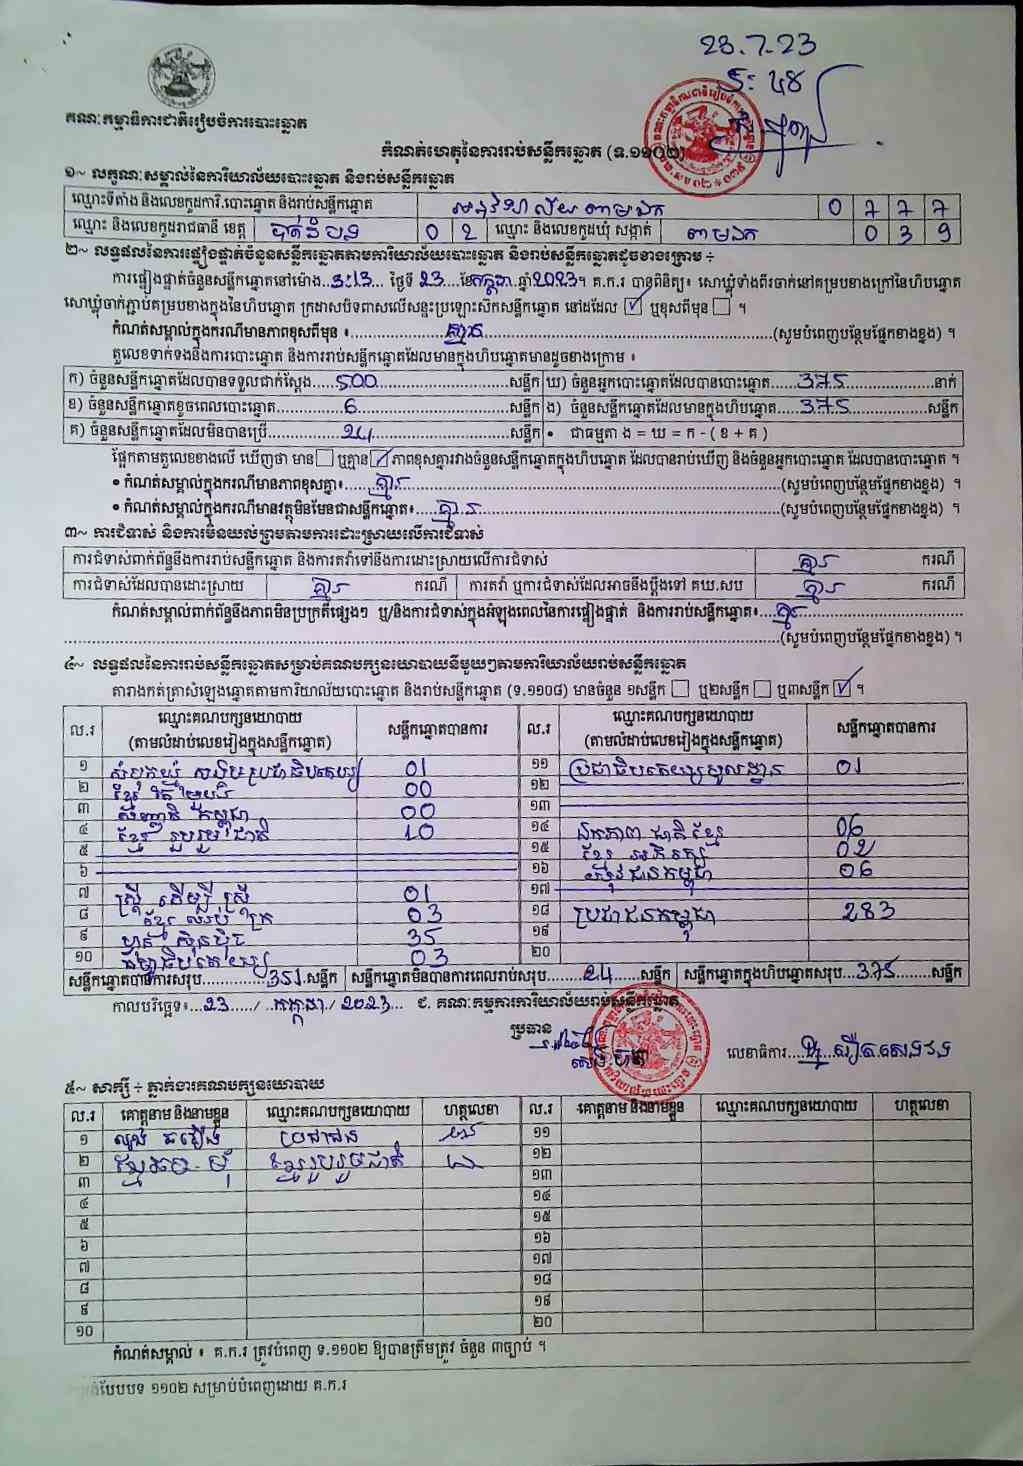 23.7.23
គណៈកម្មាធិការជាតិរៀបចំការបោះឆ្នោត
កំណត់ហេតុនៃការរាប់សន្លឹកឆ្នោត (ទ.១១០២)
១~ លក្ខណៈសម្គាល់នៃការិយាល័យបោះឆ្នោត និងរាប់សន្លឹកឆ្នោត
ឈ្មោះទីតាំង និងលេខកូដការិ.បោះឆ្នោត និងរាប់សន្លឹកឆ្នោត 0 7 7 7
ឈ្មោះ និងលេខកូដរាជធានី ខេត្ត 0 2 ឈ្មោះ និងលេខកូដឃុំ សង្កាត់ 0 3 9
២~ លទ្ធផលនៃការផ្ទៀងផ្ទាត់ចំនួនសន្លឹកឆ្នោតតាមការិយាល័យបោះឆ្នោត និងរាប់សន្លឹកឆ្នោតដូចខាងក្រោម ÷
ការផ្ទៀងផ្ទាត់ចំនួនសន្លឹកឆ្នោតនៅម៉ោង 3:13 ថ្ងៃទី 23 ខែ កក្កដា ឆ្នាំ 2023។ គ.ក.រ បានពិនិត្យ៖ សោឃ្លុំទាំងពីរចាក់នៅគម្របខាងក្រៅនៃហិបឆ្នោត
សោឃ្លុំចាក់ភ្ជាប់គម្របខាងក្នុងនៃហិបឆ្នោត ក្រដាសបិទពាសលើសន្ទះប្រឡោះស៊ីកសន្លឹកឆ្នោត នៅដដែល ✓ ឬខុសពីមុន ។
កំណត់សម្គាល់ក្នុងករណីមានភាពខុសពីមុន ៖ គ្មាន (សូមបំពេញបន្ថែមផ្នែកខាងខ្នង) ។
តួលេខទាក់ទងនឹងការបោះឆ្នោត និងការរាប់សន្លឹកឆ្នោតដែលមានក្នុងហិបឆ្នោតមានដូចខាងក្រោម ៖
ក) ចំនួនសន្លឹកឆ្នោតដែលបានទទួលជាក់ស្ដែង 500 សន្លឹក ឃ) ចំនួនអ្នកបោះឆ្នោតដែលបានបោះឆ្នោត 375 នាក់
ខ) ចំនួនសន្លឹកឆ្នោតខូចពេលបោះឆ្នោត 6 សន្លឹក ង) ចំនួនសន្លឹកឆ្នោតដែលមានក្នុងហិបឆ្នោត 375 សន្លឹក
គ) ចំនួនសន្លឹកឆ្នោតដែលមិនបានប្រើ សន្លឹក • ជាធម្មតា ង = ឃ = ក - ( ខ + គ )
ផ្អែកតាមតួលេខខាងលើ ឃើញថា មាន ឬគ្មាន ✓ ភាពខុសគ្នារវាងចំនួនសន្លឹកឆ្នោតក្នុងហិបឆ្នោត ដែលបានរាប់ឃើញ និងចំនួនអ្នកបោះឆ្នោត ដែលបានបោះឆ្នោត ។
• កំណត់សម្គាល់ក្នុងករណីមានភាពខុសគ្នា៖ គ្មាន (សូមបំពេញបន្ថែមផ្នែកខាងខ្នង) ។
• កំណត់សម្គាល់ក្នុងករណីមានវត្ថុមិនមែនជាសន្លឹកឆ្នោត៖ គ្មាន (សូមបំពេញបន្ថែមផ្នែកខាងខ្នង) ។
៣~ ការជំទាស់ និងការមិនយល់ព្រមតាមការដោះស្រាយលើការជំទាស់
ការជំទាស់ពាក់ព័ន្ធនឹងការរាប់សន្លឹកឆ្នោត និងការតវ៉ាទៅនឹងការដោះស្រាយលើការជំទាស់ គ្មាន ករណី
ការជំទាស់ដែលបានដោះស្រាយ គ្មាន ករណី ការតវ៉ា ឬការជំទាស់ដែលអាចនឹងប្ដឹងទៅ គឃ.សប គ្មាន ករណី
កំណត់សម្គាល់ពាក់ព័ន្ធនឹងភាពមិនប្រក្រតីផ្សេងៗ ឬ/និងការជំទាស់ក្នុងអំឡុងពេលនៃការផ្ទៀងផ្ទាត់ និងការរាប់សន្លឹកឆ្នោត៖ គ្មាន
(សូមបំពេញបន្ថែមផ្នែកខាងខ្នង) ។
៤~ លទ្ធផលនៃការរាប់សន្លឹកឆ្នោតសម្រាប់គណបក្សនយោបាយនីមួយៗតាមការិយាល័យរាប់សន្លឹកឆ្នោត
តារាងកត់ត្រាសំឡេងឆ្នោតតាមការិយាល័យបោះឆ្នោត និងរាប់សន្លឹកឆ្នោត (ទ.១១០៨) មានចំនួន ១សន្លឹក ឬ២សន្លឹក ឬ៣សន្លឹក ✓ ។
ល.រ ឈ្មោះគណបក្សនយោបាយ (តាមលំដាប់លេខរៀងក្នុងសន្លឹកឆ្នោត) សន្លឹកឆ្នោតបានការ ល.រ ឈ្មោះគណបក្សនយោបាយ (តាមលំដាប់លេខរៀងក្នុងសន្លឹកឆ្នោត) សន្លឹកឆ្នោតបានការ
១ សំបុកឃ្មុំ សង្គមប្រជាធិបតេយ្យ 01 ១១ ប្រជាធិបតេយ្យមូលដ្ឋាន 01
២ ខ្មែរ តែមួយ 00 ១២
៣ សញ្ជាតិ កម្ពុជា 00 ១៣
៤ ខ្មែរ រួបរួម ជាតិ 10 ១៤ ឯកភាព ជាតិ ខ្មែរ 06
៥ ១៥ ខ្មែរ អភិរក្ស 02
៦ ១៦ យុវជនកម្ពុជា 06
៧ ស្រ្តី ដើម្បី ស្រ្តី 01 ១៧
៨ ខ្មែរ ឈប់ ក្រ 03 ១៨ ប្រជាជនកម្ពុជា 283
៩ ហ្វ៊ុនស៊ិនប៉ិច 35 ១៩
១០ ធម្មាធិបតេយ្យ 03 ២០
សន្លឹកឆ្នោតបានការសរុប 351 សន្លឹក សន្លឹកឆ្នោតមិនបានការពេលរាប់សរុប 24 សន្លឹក សន្លឹកឆ្នោតក្នុងហិបឆ្នោតសរុប 375 សន្លឹក
កាលបរិច្ឆេទ៖ 23 / កក្កដា / 2023 ជ. គណៈកម្មការការិយាល័យរាប់សន្លឹកឆ្នោត
ប្រធាន
លេខាធិការ
៥~ សាក្សី ÷ ភ្នាក់ងារគណបក្សនយោបាយ
ល.រ គោត្តនាម និងនាមខ្លួន ឈ្មោះគណបក្សនយោបាយ ហត្ថលេខា ល.រ គោត្តនាម និងនាមខ្លួន ឈ្មោះគណបក្សនយោបាយ ហត្ថលេខា
១ ប្រជាជន ១១
២ ខ្មែររួបរួមជាតិ ១២
៣ ១៣
៤ ១៤
៥ ១៥
៦ ១៦
៧ ១៧
៨ ១៨
៩ ១៩
១០ ២០
កំណត់សម្គាល់ ៖ គ.ក.រ ត្រូវបំពេញ ទ.១១០២ ឱ្យបានត្រឹមត្រូវ ចំនួន ៣ច្បាប់ ។
បែបបទ ១១០២ សម្រាប់បំពេញដោយ គ.ក.រ